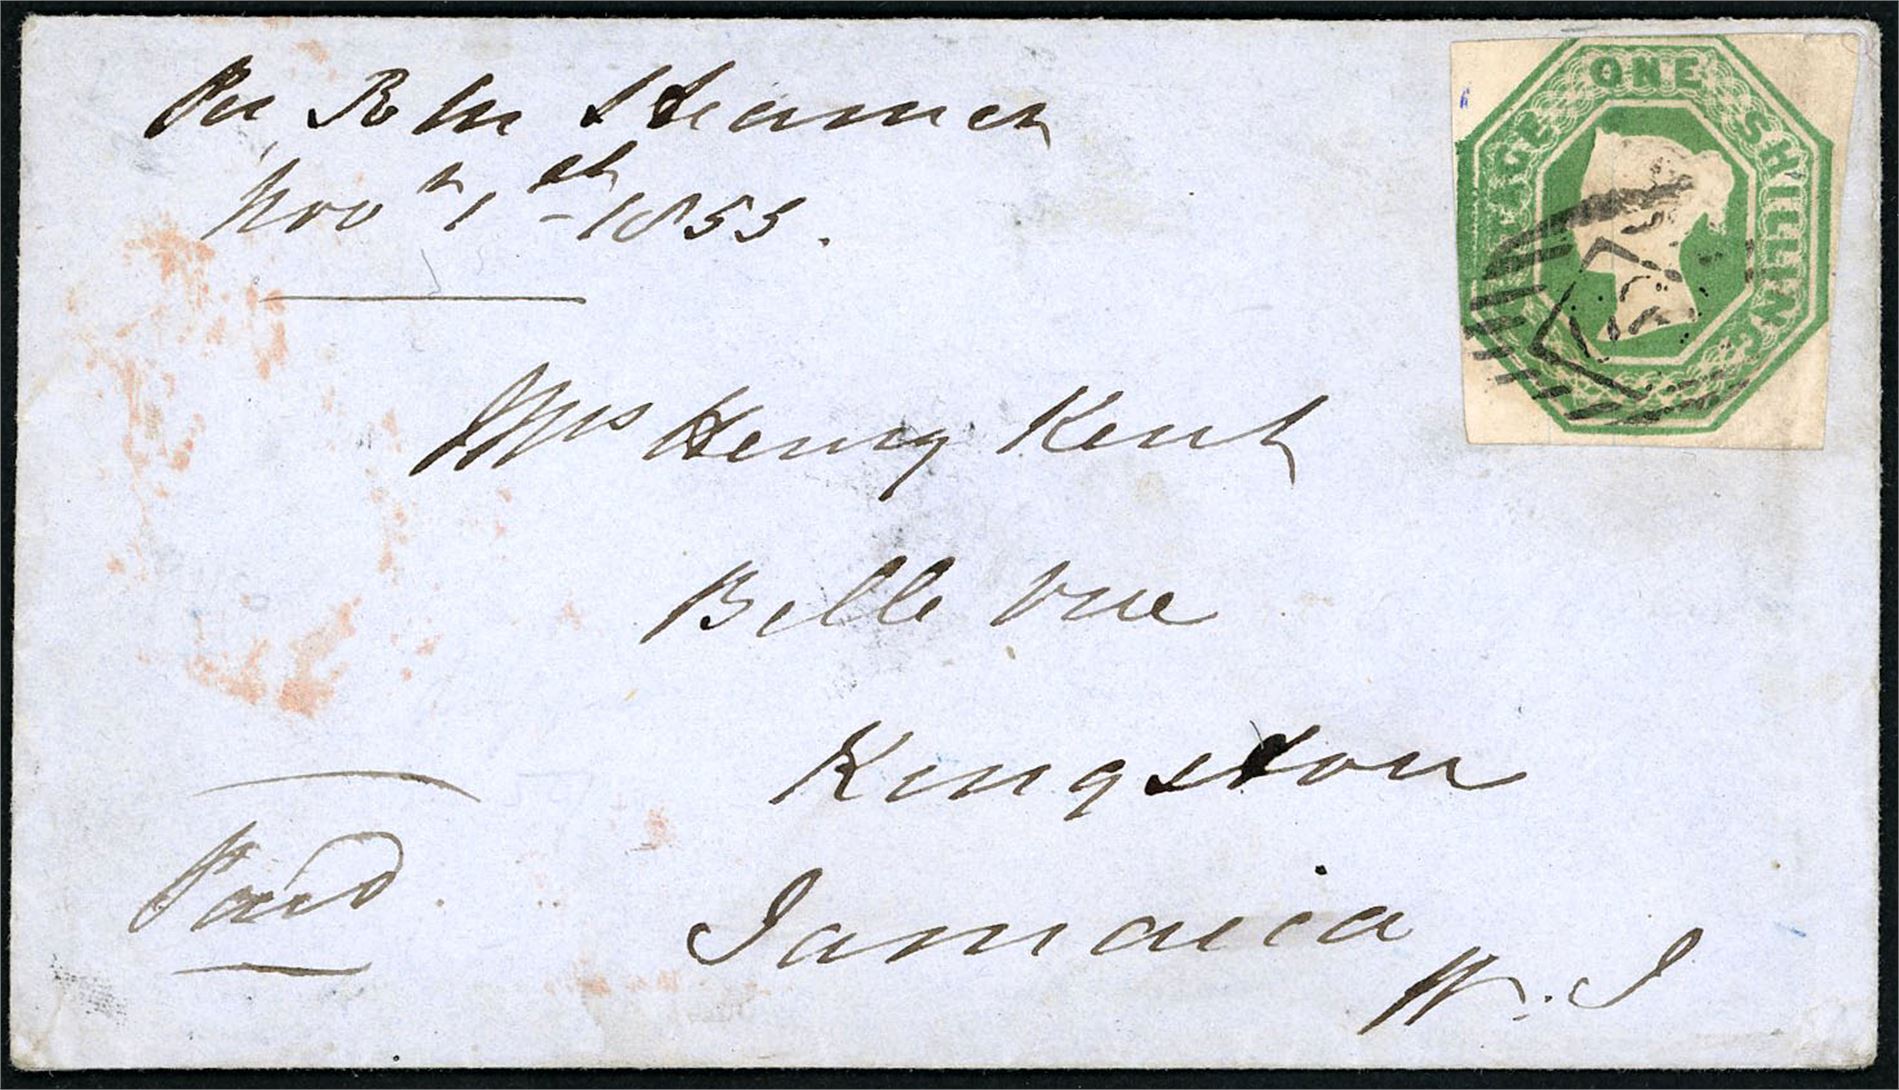 Per R M Steamer
Novr 1st 1855.
POSTAGE ONE SHILLING
Mrs Henry Kent
Belle Vue
Kingston
Jamaica
W. I
Paid